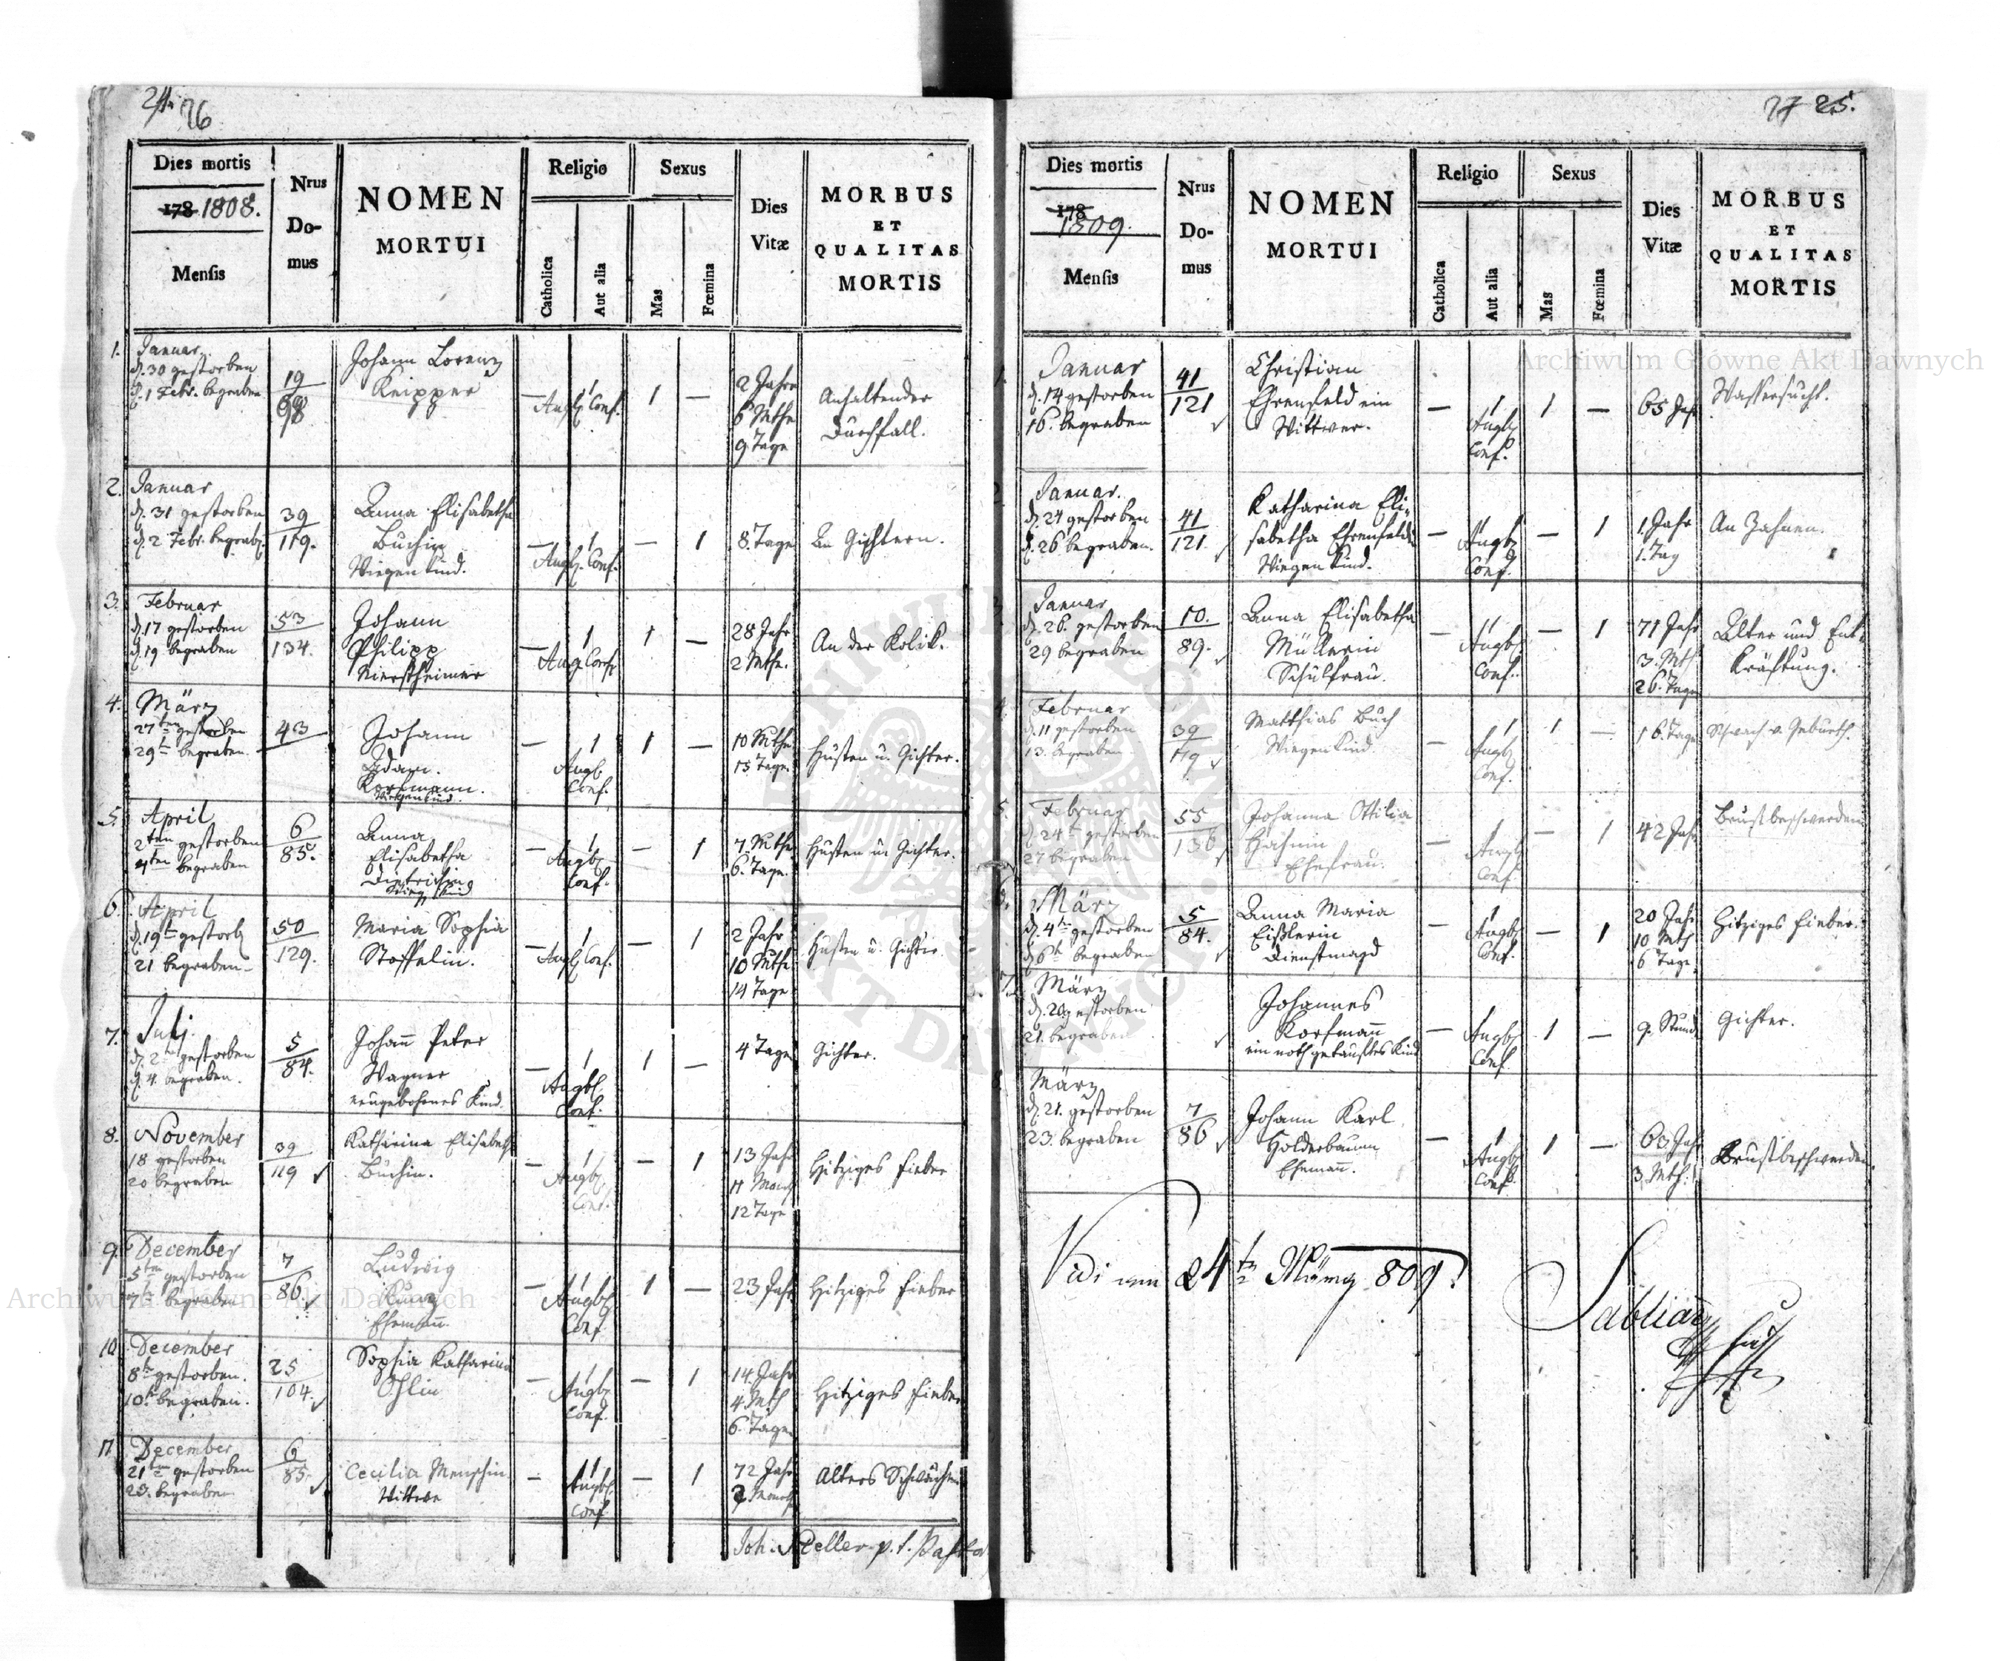 24. 26
Dies mortis
178 1808.
Mensis
Nrus
Do-
mus
NOMEN
MORTUI
Religio
Catholica
Aut alia
Sexus
Mas
Fœmina
Dies
Vitæ
MORBUS
ET
QUALITAS
MORTIS
1. Januar.
d. 30 gestorben
d. 1 Febr. begraben
19
98
Johann Lorenz
Knipper
— 1
Augb. Conf.
1 —
2 Jahre
6 Mthe
9 Tage
Anhaltender
Durchfall.
2. Januar
d. 31 gestorben
d. 2 Febr. begrab.
39
119.
Anna Elisabetha
Buchin
Wiegen Kind.
— 1
Augb. Conf.
— 1
8. Tage
An Gichtern.
3. Februar
d. 17 gestorben
d. 19 begraben
53
134.
Johann
Philipp
Nierstheimer
— 1
Augb. Conf.
1 —
28 Jahr
2 Mthe.
An der Kolik.
4. März
27ten gestorben
29te begraben.
43
Johann
Adam.
Korfmann.
Wiegenkind.
— 1
Augb.
Conf.
1 —
10 Mthe
15 Tage.
Husten u. Gichter.
5. April
2ten gestorben
4ten begraben
6
85.
Anna
Elisabetha
Dietrichin
Wieg. Kind
— 1
Augb.
Conf.
— 1
7. Mthe
6. Tage.
Husten u. Gichter.
6. April
d. 19te gestorb.
21 begraben.
50
129.
Maria Sophia
Stoffelin.
— 1
Augb. Conf.
— 1
2 Jahr
10 Mthe
14 Tage
Husten u. Gichter.
7. Julj.
d. 2te gestorben
d. 4. begraben.
5
84.
Johan̄ Peter
Wagner
neugebohrnes Kind.
— 1
Augb.
Conf.
1 —
4 Tage
Gichter.
8. November
18 gestorben
20 begraben
39
119
Katharina Elisabeth
Buchin.
— 1
Augb.
Conf.
— 1
13 Jahr
11 Monath
12 Tage
Hitziges Fieber
9. December
5ten gestorben
7te begraben
7
86.
Ludwig
Kunz
Eheman̄.
— 1
Augb.
Conf.
1 —
23 Jahr
Hitziges Fieber
10. December
8te gestorben.
10t. begraben.
25
104.
Sophia Katharina
Ohlin
— 1
Augb.
Conf.
— 1
14. Jahr
4. Mth
6. Tage.
Hitziges Fieber
11. December
21te gestorben
23. begraben
6
85.
Cecilia Menschin
Wittwe
— 1
Augb.
Conf.
— 1
72 Jahr
Alters Schwäche
Joh. p. t. Pastor
27 25.
Dies mortis
178
1809.
Mensis
Nrus
Do-
mus
NOMEN
MORTUI
Religio
Catholica
Aut alia
Sexus
Mas
Fœmina
Dies
Vitæ
MORBUS
ET
QUALITAS
MORTIS
1. Januar
d. 14 gestorben
16. begraben
41
121
Christian
Ehrenfeld ein
Wittwer.
— 1
Augb.
Conf.
1 —
65 Jahr
Wassersucht.
2. Januar.
d. 24 gestorben
d. 26 begraben.
41
121.
Katharina Eli-
sabetha Ehrenfeldin
Wiegen Kind.
— 1
Augb.
Conf.
— 1
1. Jahr
1. Tag
An Zahnen.
3. Januar
d. 26. gestorben
29 begraben
10.
89.
Anna Elisabetha
Müllerin
Schulfrau.
— 1
Augb.
Conf.
— 1
71 Jahr
3. Mth.
26. Tage
Alter und Ent-
kräftung.
4. Februar
d. 11 gestorben
13. begraben.
39
119
Matthias Buch
Wiegen Kind.
— 1
Augb.
Conf.
1 —
16. Tage
Schwach v. Geburth.
5. Februar
d. 24te gestorben
27 begraben
55
136
Johanna Ottilia
Hahnin
Ehefrau.
— 1
Augb.
Conf.
— 1
42 Jahr
Brustbeschwerden
6. März
d. 4te gestorben
d. 6te begraben
5
84.
Anna Maria
Eißlerin
Dienstmagd
— 1
Augb.
Conf.
— 1
20 Jahr
10 Mth
6 Tage.
Hitziges Fieber.
7. März
d. 20 gestorben
21. begraben
Johannes
Korfman̄
ein nothgetauftes Kind
— 1
Augb.
Conf.
1 —
9. Stund
Gichter.
8. März
d. 21. gestorben
23. begraben
7
86
Johann Karl
Holderbaum
Eheman̄.
— 1
Augb.
Conf.
1 —
63 Jahr
3. Mth.
Brustbeschwerden.
Vidi am 24tn März 809.
Archiwum Główne Akt Dawnych
Archiwum Główne Akt Dawnych
ARCHIWUM GŁÓWNE AKT DAWNYCH